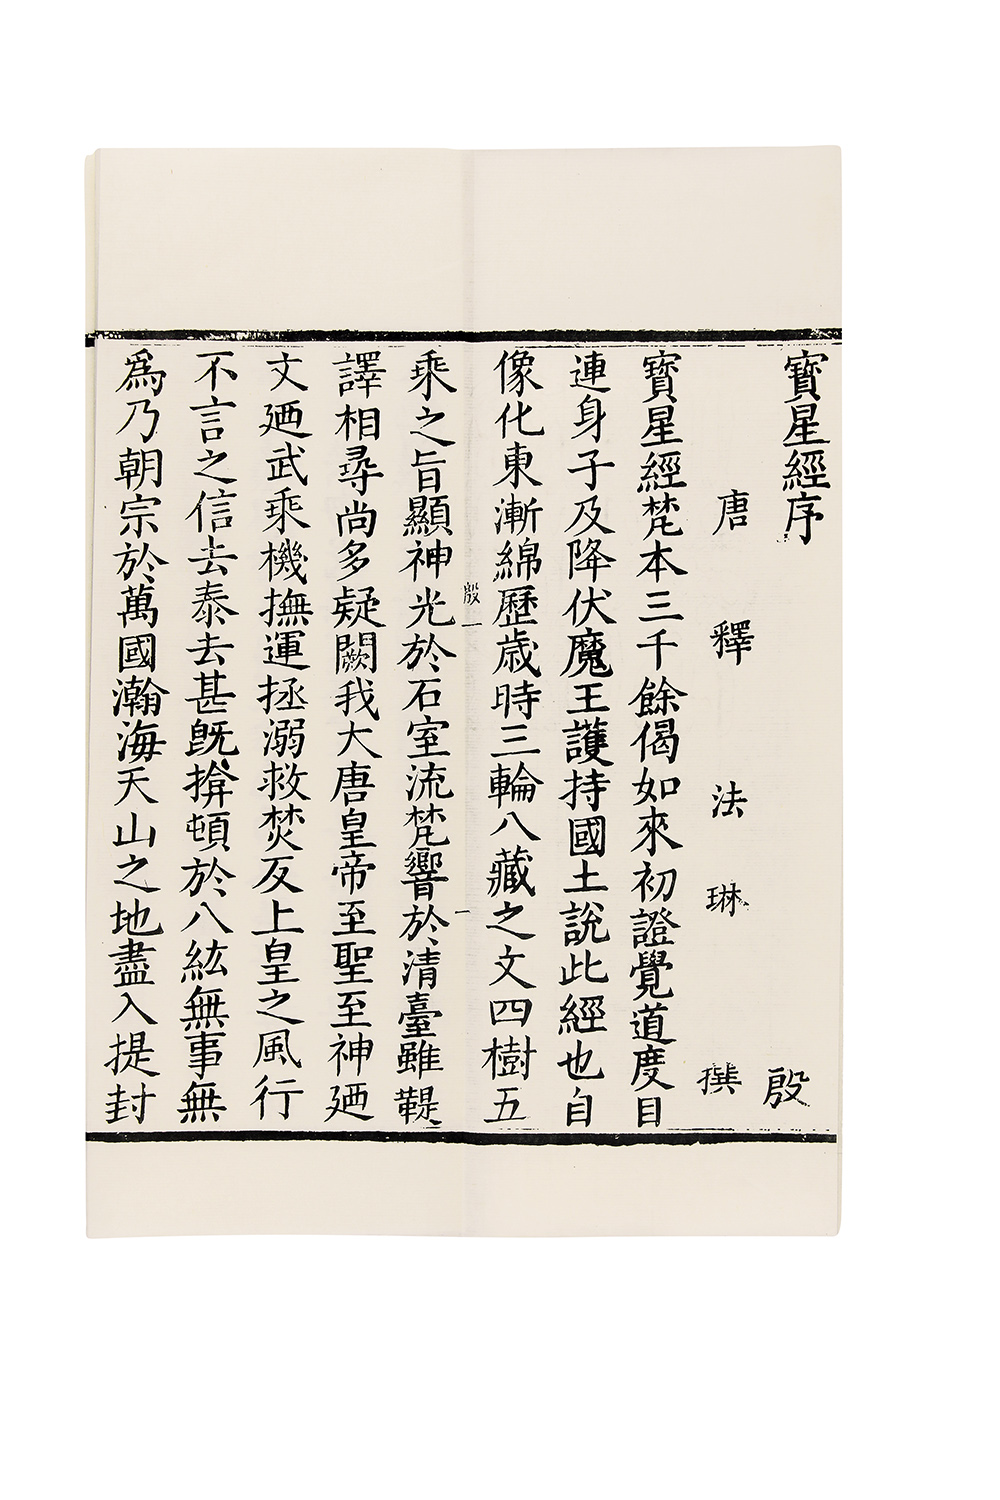 寶星經序
殷
唐釋法琳撰
寶星經梵本三千餘偈如來初證覺道度目
連身子及降伏魔王護持國土說此經也自
像化東漸綿歷歲時三輪八藏之文四樹五
殷一
一
乘之旨顯神光於石室流梵響於清臺雖鞮
譯相尋尚多疑闕我大唐皇帝至聖至神廼
文廼武乘機撫運拯溺救焚反上皇之風行
不言之信去泰去甚旣揜頓於八紘無事無
爲乃朝宗於萬國瀚海天山之地盡入提封